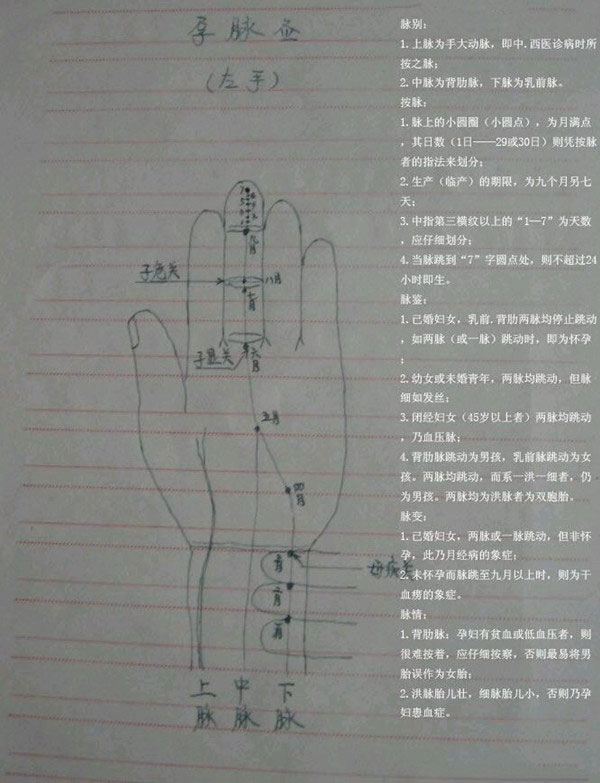 孕脉
(左手)
九月
子危关
八月
七月
六月
五月
四月
上脉
中脉
下脉
脉别：
1.上脉为手大动脉，即中.西医诊病时所
按之脉；
2.中脉为背肋脉，下脉为乳前脉。
按脉：
1.脉上的小圆圈（小圆点），为月满点
，其日数（1日——29或30日）则凭按脉
者的指法来划分；
2.生产（临产）的期限，为九个月另七
天；
3.中指第三横纹以上的“1—7”为天数
，应仔细划分；
4.当脉跳到“7”字圆点处，则不超过24
小时即生。
脉鉴：
1.已婚妇女，乳前.背肋两脉均停止跳动
，如两脉（或一脉）跳动时，即为怀孕
；
2.幼女或未婚青年，两脉均跳动，但脉
细如发丝；
3.闭经妇女（45岁以上者）两脉均跳动
，乃血压脉；
4.背肋脉跳动为男孩，乳前脉跳动为女
孩。两脉均跳动，而系一洪一细者，仍
为男孩。两脉均为洪脉者为双胞胎。
脉变：
1.已婚妇女，两脉或一脉跳动，但非怀
孕，此乃月经病的象症；
2.未怀孕而脉跳至九月以上时，则为干
血痨的象症。
脉情：
1.背肋脉：孕妇有贫血或低血压者，则
很难按着，应仔细按察，否则最易将男
胎误作为女胎；
2.洪脉胎儿壮，细脉胎儿小，否则乃孕
妇患血症。